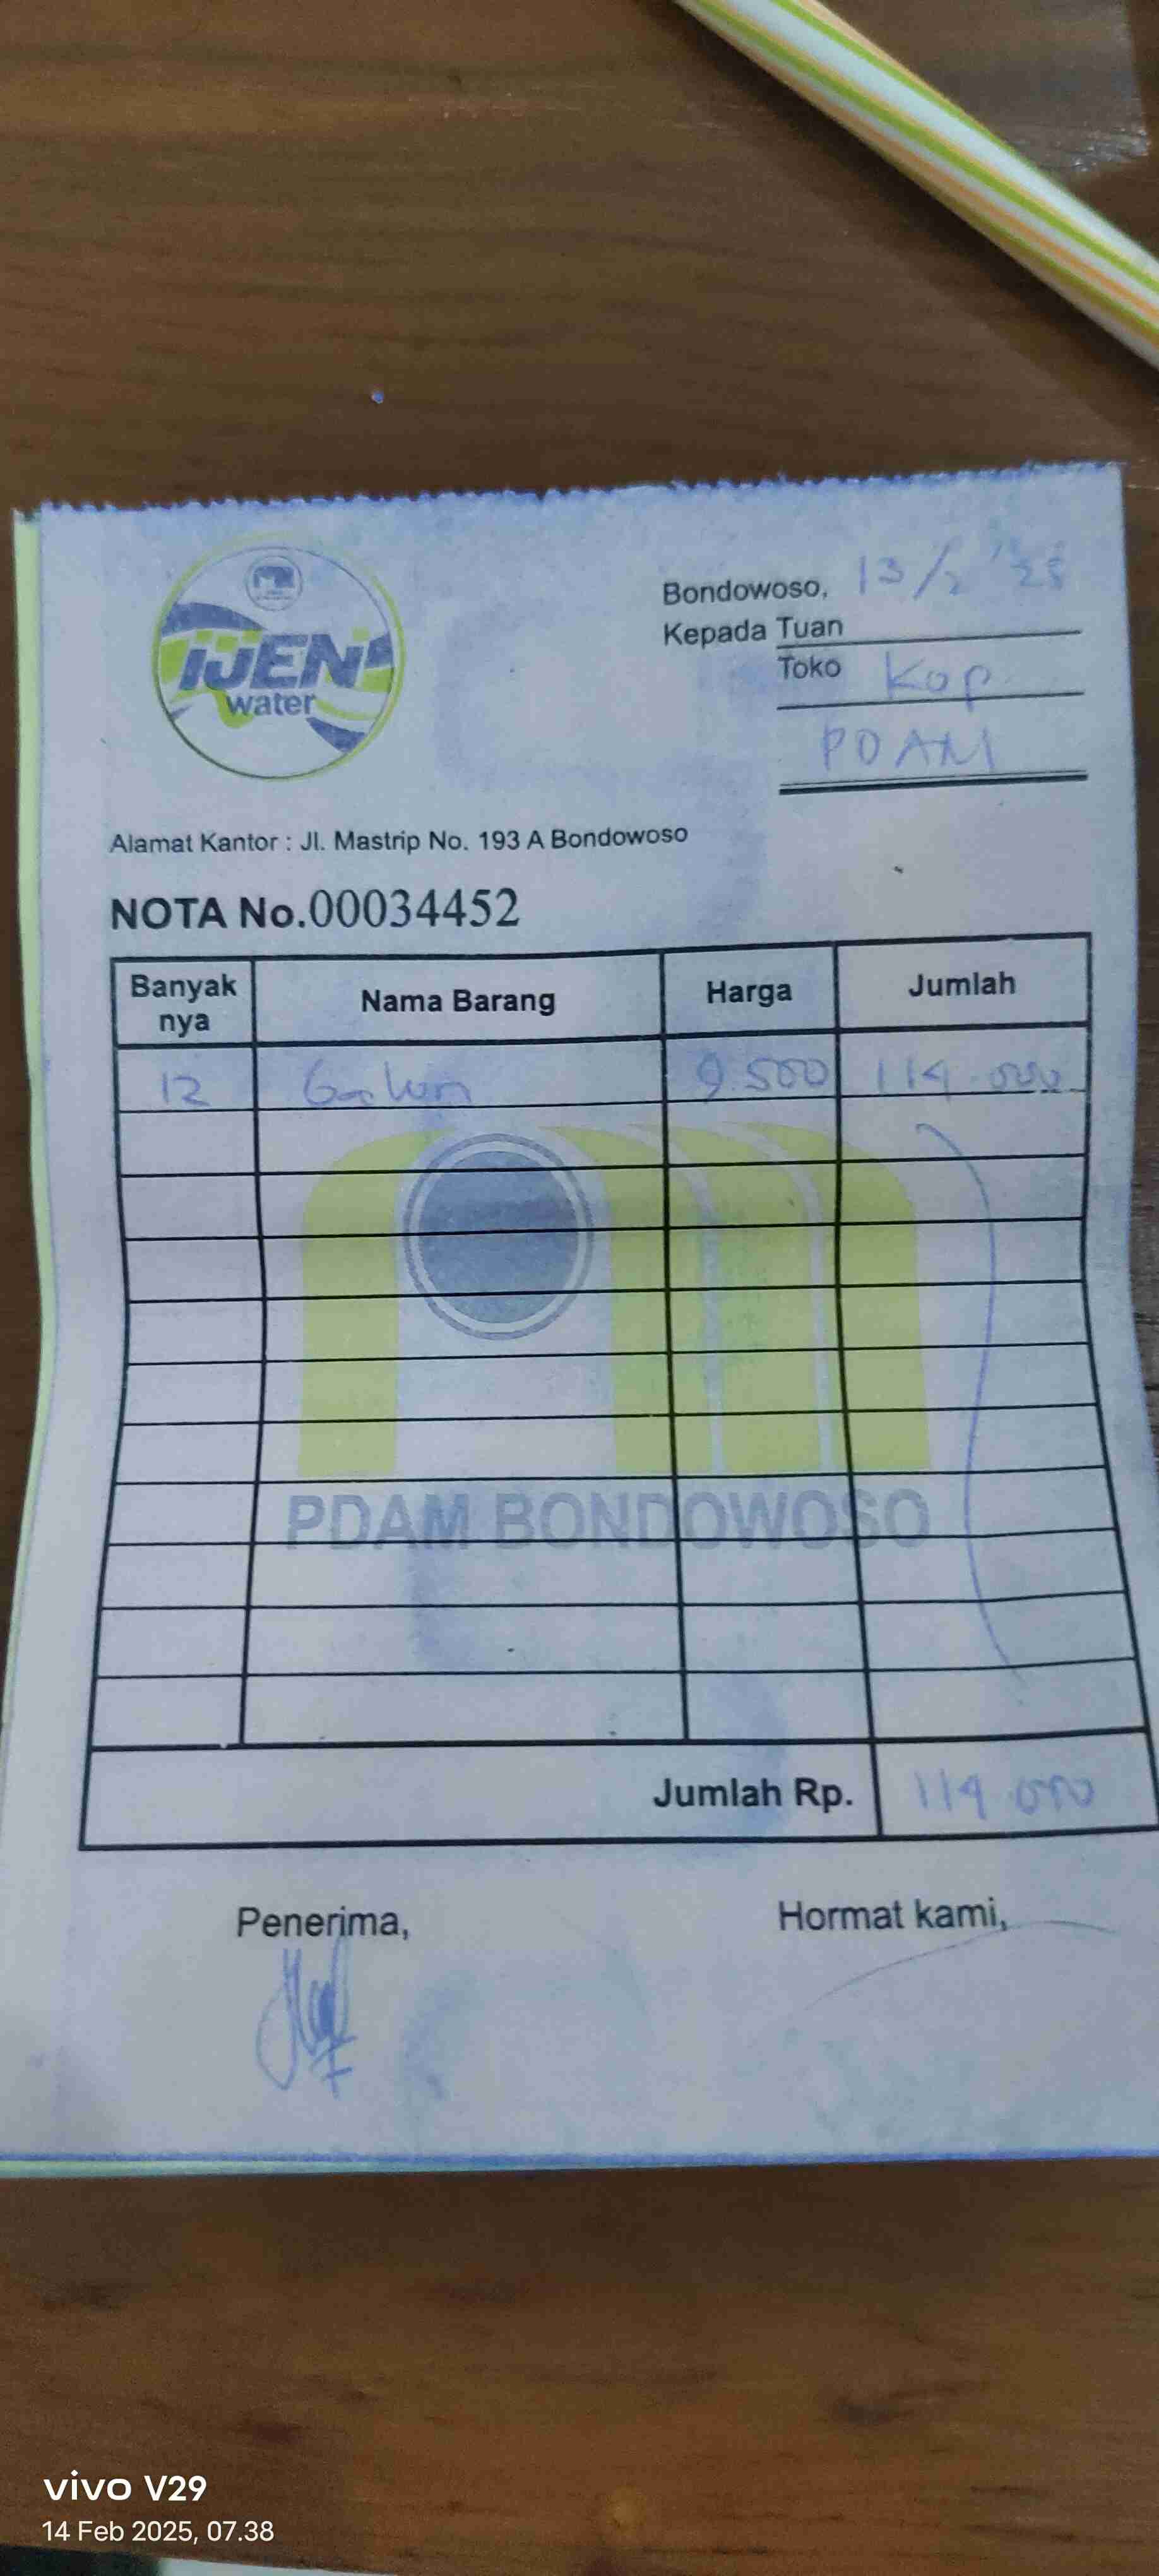 IJEN
water
Bondowoso, 13/2 '25
Kepada Tuan
Toko Kop.
PDAM
Alamat Kantor : Jl. Mastrip No. 193 A Bondowoso
NOTA No.00034452
Banyak nya Nama Barang Harga Jumlah
12 Galon 9.500 114.000
PDAM BONDOWOSO
Jumlah Rp. 114.000
Penerima, Hormat kami,
vivo V29
14 Feb 2025, 07.38